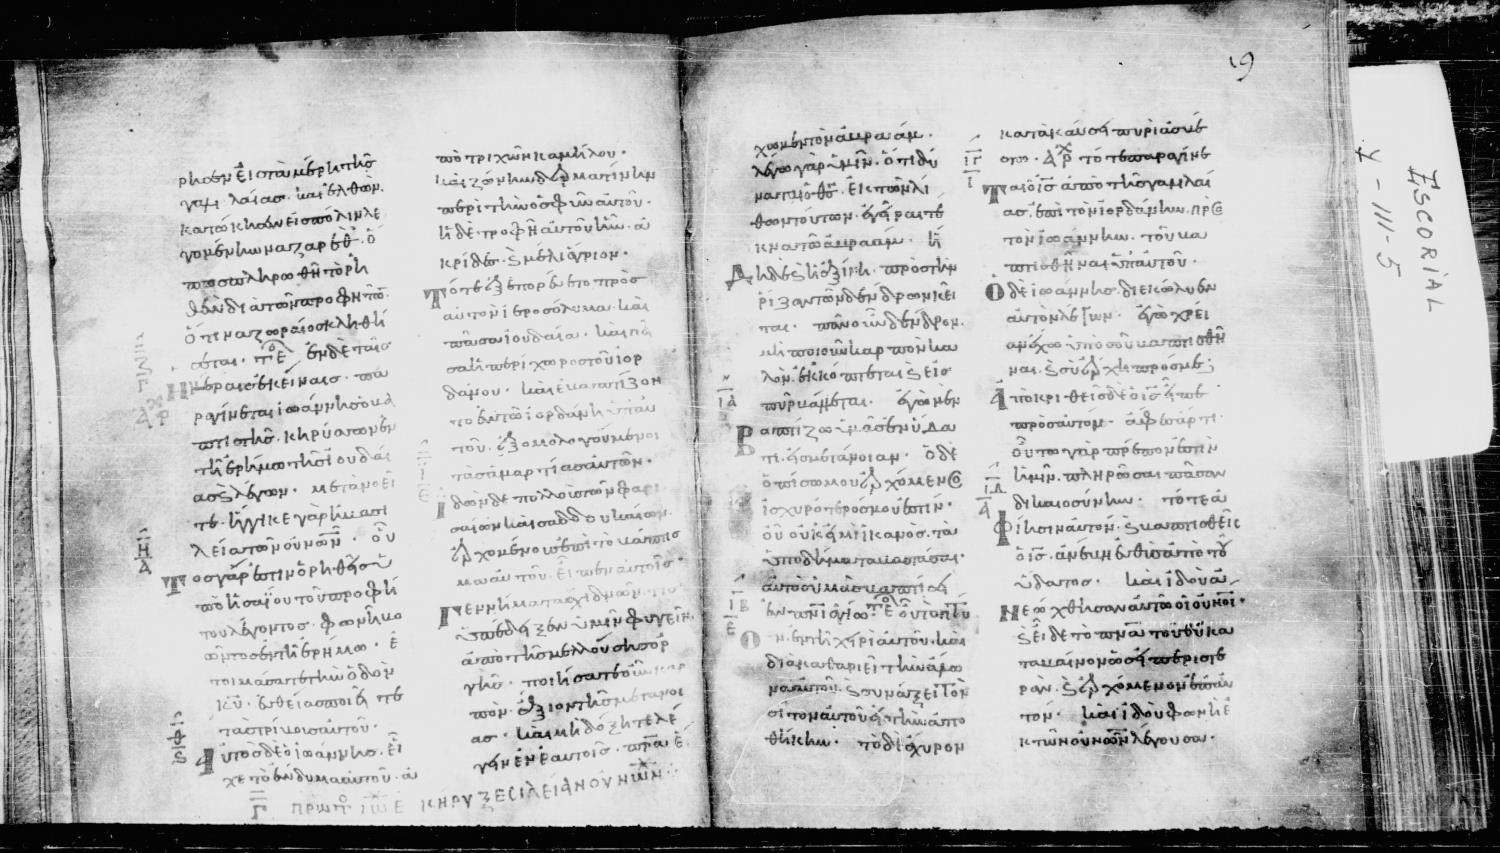 ρησεν εἰς τὰ μέρη τῆς
γαλιλαίας. καὶ ἐλθὼν
κατώκησεν εἰς πόλιν λε
γομένην ναζαρέθ. ὅ
πως πληρωθῆ τὸ ῥη
θὲν διὰ τῶν προφητῶν
ὅτι ναζωραῖος κληθή
σεται. τε ἐν δὲ ταῖς
Ημέραις ἐκείναις. πα
ραγίνεται ἰωάννης ὁ βα
πτιστὴς. κηρύσσων ἐν
τῆ ἐρήμω τῆς ἰουδαί
ας ϗ λέγων. μετανοεῖ
τε. ἤγγικε γὰρ ἡ βασι
λεία τῶν οὐνῶν. οὗ
Τος γάρ ἐστιν ὁ ῥηθεὶς ὑ
πὸ ἡσαΐου τοῦ προφή
του λέγοντος. φωνὴ βο
ῶντος ἐν τῆ ἐρήμω. ἑ
τοιμάσατε τὴν ὁδὸν
κῦ. εὐθείας ποιεῖτε
τὰς τρίβους αὐτοῦ.
Αὐτὸς δὲ ὁ ἰωάννης. εἶ
χε τὸ ἔνδυμα αὐτοῦ. ἀ
πὸ τριχῶν καμήλου.
καὶ ζώνην δερματίνην
περὶ τὴν ὀσφὺν αὐτοῦ.
ἡ δὲ τροφὴ αὐτοῦ ἦν. ἀ
κρίδες. ϗ μέλι ἄγριον.
Τότε ἐξεπορεύετο πρὸς
αὐτὸν ἱεροσόλυμα. καὶ
πᾶσα ἡ ἰουδαία. καὶ πᾶ
σα ἡ περίχωρος τοῦ ἰορ
δάνου. καὶ ἐβαπτίζον
το ἐν τῶ ἰορδάνη ὑπ' αὐ
τοῦ. ἐξομολογούμενοι
τὰς ἁμαρτίας αὐτῶν.
Ἰδὼν δὲ πολλοὺς τῶν φαρι
σαίων καὶ σαδδουκαίων
ἐρχομένους ἐπὶ τὸ βάπτισ
μα αὐτοῦ. εἶπεν αὐτοῖς.
Γεννήματα ἐχιδνῶν. τίς
ὑπέδειξεν ὑμῖν φυγεῖν
ἀπὸ τῆς μελλούσης ὀρ
γῆς. ποιήσατε οὖν καρ
πὸν. ἄξιον τῆς μετανοί
ας. καὶ μὴ δόξητε λέ
γειν ἐν ἑαυτοῖς. πρα ἔ
χωμεν τὸν ἀβραάμ.
λέγω γὰρ ὑμῖν. ὅτι δύ
ναται ὁ θς. ἐκ τῶν λί
θων τούτων. ἐγεῖραι τέ
κνα τῶ ἀβραάμ. ἤ
Δη δὲ ϗ ἡ ἀξίνη. πρὸς τὴν
ῥίζαν τῶν δένδρων κεῖ
ται. πᾶν οὖν δένδρον.
μὴ ποιοῦν καρπὸν κα
λὸν. ἐκκόπτεται ϗ εἰς
πῦρ βάλλεται. ἐγὼ μὲν
Βαπτίζω ὑμᾶς ἐν ὕδα
τι. εἰς μετάνοιαν. ὁ δὲ
ὀπίσω μου ἐρχόμενος
ἰσχυρότερός μου ἐστίν.
οὗ οὐκ εἰμὶ ἱκανὸς. τὰ
ὑποδήματα βαστάσαι.
αὐτὸς ὑμᾶς βαπτίσει
ἐν πνὶ ἁγίω. τε οὗ τὸ πτύ
ον. ἐν τῆ χειρὶ αὐτοῦ. καὶ
διακαθαριεῖ τὴν ἅλω
να αὐτοῦ. ϗ συνάξει τὸν
σῖτον αὐτοῦ εἰς τὴν ἀπο
θήκην. τὸ δὲ ἄχυρον
κατακαύσει πυρὶ ἀσβέσ
τω. ΑΡΧ τότε παραγίνε
Ται ὁ ἰς ἀπὸ τῆς γαλιλαί
ας. ἐπὶ τὸν ἰορδάνην. πρὸς
τὸν ἰωάννην. τοῦ βα
πτισθῆναι ὑπ' αὐτοῦ.
Ὁ δὲ ἰωάννης. διεκώλυεν
αὐτὸν λέγων. ἐγὼ χρεί
αν ἔχω ὑπὸ σοῦ βαπτισθῆ
ναι. ϗ σὺ ἔρχη πρός με;
Ἀποκριθεὶς δὲ ὁ ἰς εἶπε
πρὸς αὐτόν. ἄφες ἄρτι.
οὕτω γὰρ πρέπον ἐστὶν
ἡμῖν. πληρῶσαι πᾶσαν
δικαιοσύνην. τότε ἀ
Φίησιν αὐτόν. ϗ βαπτισθεὶς
ὁ ἰς. ἀνέβη εὐθὺς ἀπὸ τοῦ
ὕδατος. καὶ ἰδοὺ ἀ
Νεώχθησαν αὐτῶ οἱ οὐνοί.
ϗ εἶδε τὸ πνα τοῦ θῦ κα
ταβαῖνον ὡσεὶ περιστε
ράν. ϗ ἐρχόμενον ἐπ' αὐ
τόν. καὶ ἰδοὺ φωνὴ ἐ
κ τῶν οὐνῶν λέγουσα.
ESCORIAL
Y-III-5